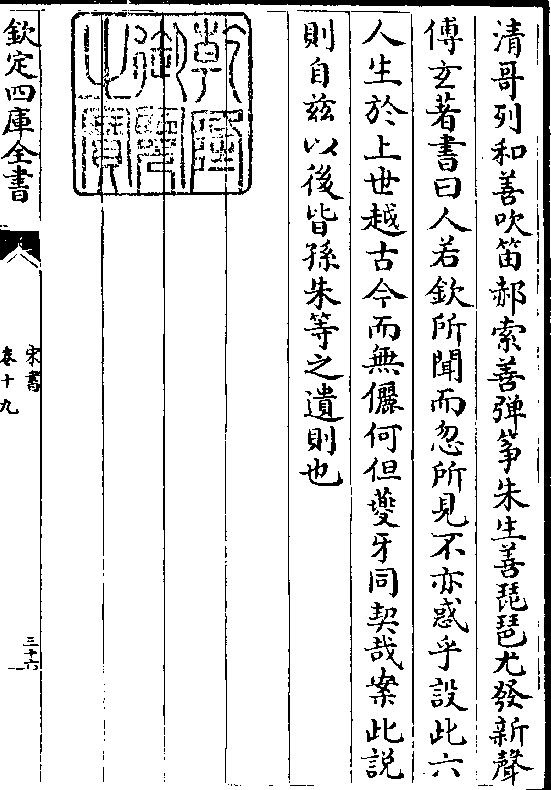 清哥列和善吹笛郝索善弹筝朱生善琵琶尤發新聲
傅玄著書曰人若欽所聞而忽所見不亦惑乎設此六
人生於上世越古今而無儷何但夔牙同契哉案此説
則自兹以後皆孫朱等之遺則也
乾隆御覽之寶
欽定四庫全書
宋書
卷十九
三十六